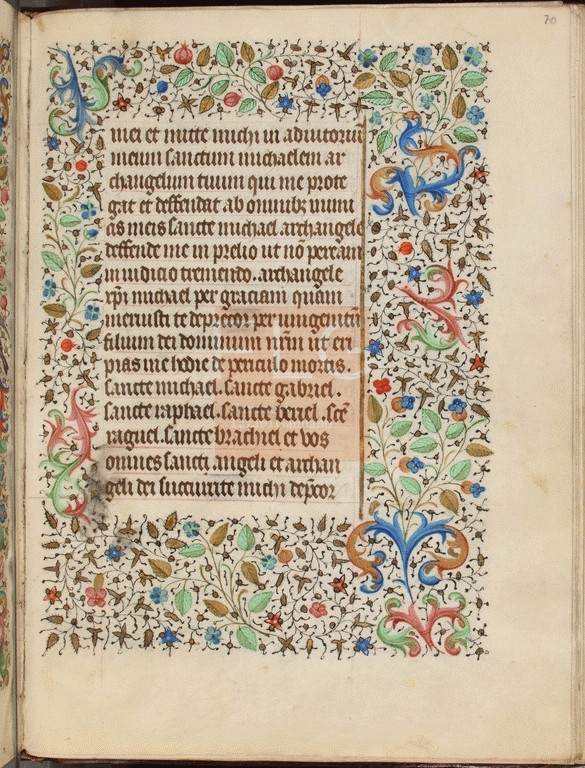 70
mei et mitte michi in adiutoriu
meum sanctum michaelem ar
changelum tuum qui me prote
gat et deffendat ab omnibz inimi
cis meis sancte michael archangele
deffende me in prelio ut nō peream
in iudicio tremendo. archangele
xp̄i michael per graciam quam
meruisti te deprecor per unigenitū
filium dei dominum nr̄m ut eri
pias me hodie de periculo mortis.
sancte michael. sancte gabriel.
sancte raphael. sancte beriel. scē
raguel. sancte brachiel et vos
omnes sancti angeli et archan
geli dei succurite michi dep̄cor